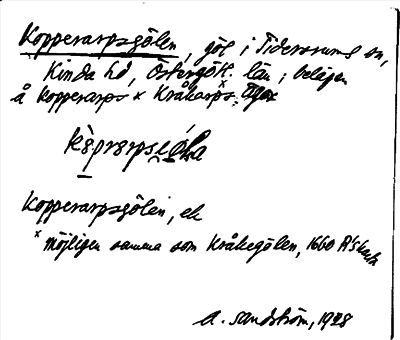 Kopperarpsgölen, göl i Tidersrums sn,
Kinda hd, Östergötl. län; belägen
å Kopperarps x Kråkarps ägor
Kopperarpsgölen, ek
x möjligen samma som Kråkegölen, 1660
A. Sandström, 1928